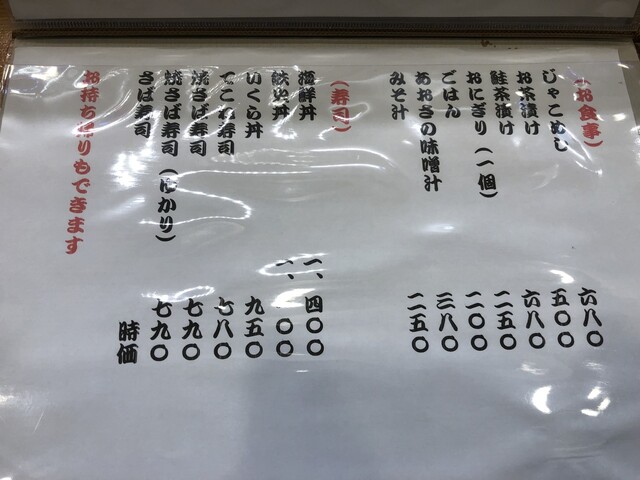 (お食事)
じゃこめし 六八〇
お茶漬け 五〇〇
鮭茶漬け 六八〇
おにぎり(一個) 二五〇
ごはん 二〇〇
あおさの味噌汁 三八〇
みそ汁 二五〇
(寿司)
海鮮丼 一、四〇〇
鉄火丼
いくら丼 九五〇
てこね寿司 七八〇
焼さば寿司 七九〇
焼さば寿司(ゆかり) 七九〇
さば寿司 時価
お持ち帰りもできます